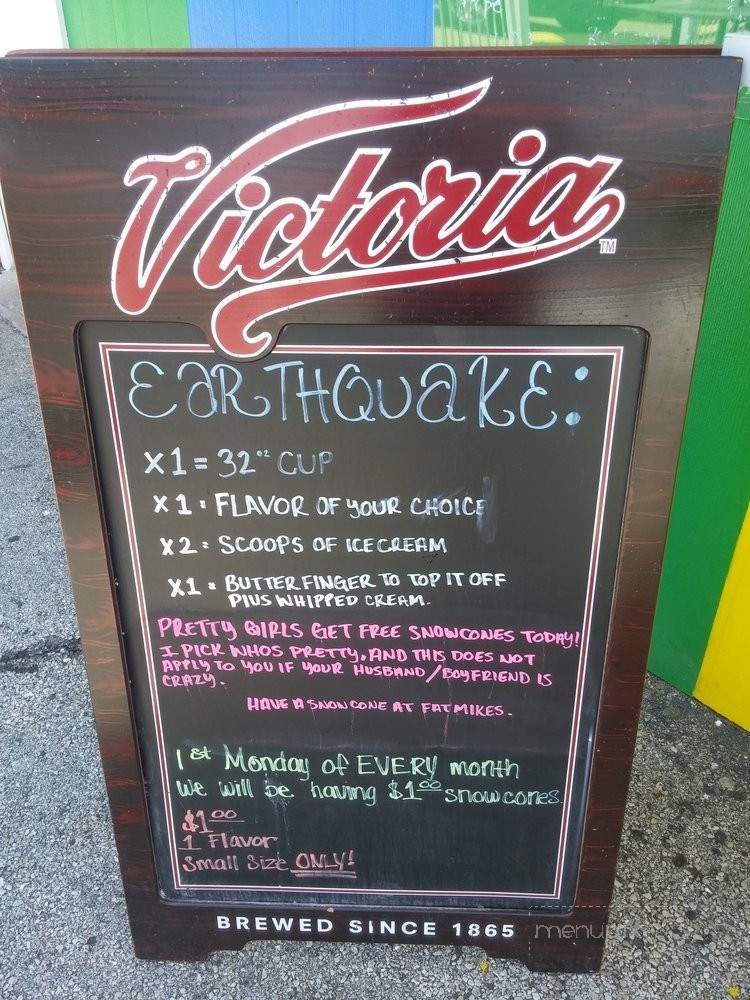 Victoria
TM
EARTHQUAKE:
X1 = 32oz CUP
X1: FLAVOR OF YOUR CHOICE
X2: SCOOPS OF ICE CREAM
X1: BUTTERFINGER TO TOP IT OFF
PLUS WHIPPED CREAM.
PRETTY GIRLS GET FREE SNOWCONES TODAY!
I PICK WHOS PRETTY, AND THIS DOES NOT
APPLY TO YOU IF YOUR HUSBAND/BOYFRIEND IS
CRAZY.
HAVE A SNOWCONE AT FATMIKES.
1st Monday of EVERY month
We will be having $1.00 snowcones.
$1.00
1 Flavor
Small Size ONLY!
BREWED SINCE 1865